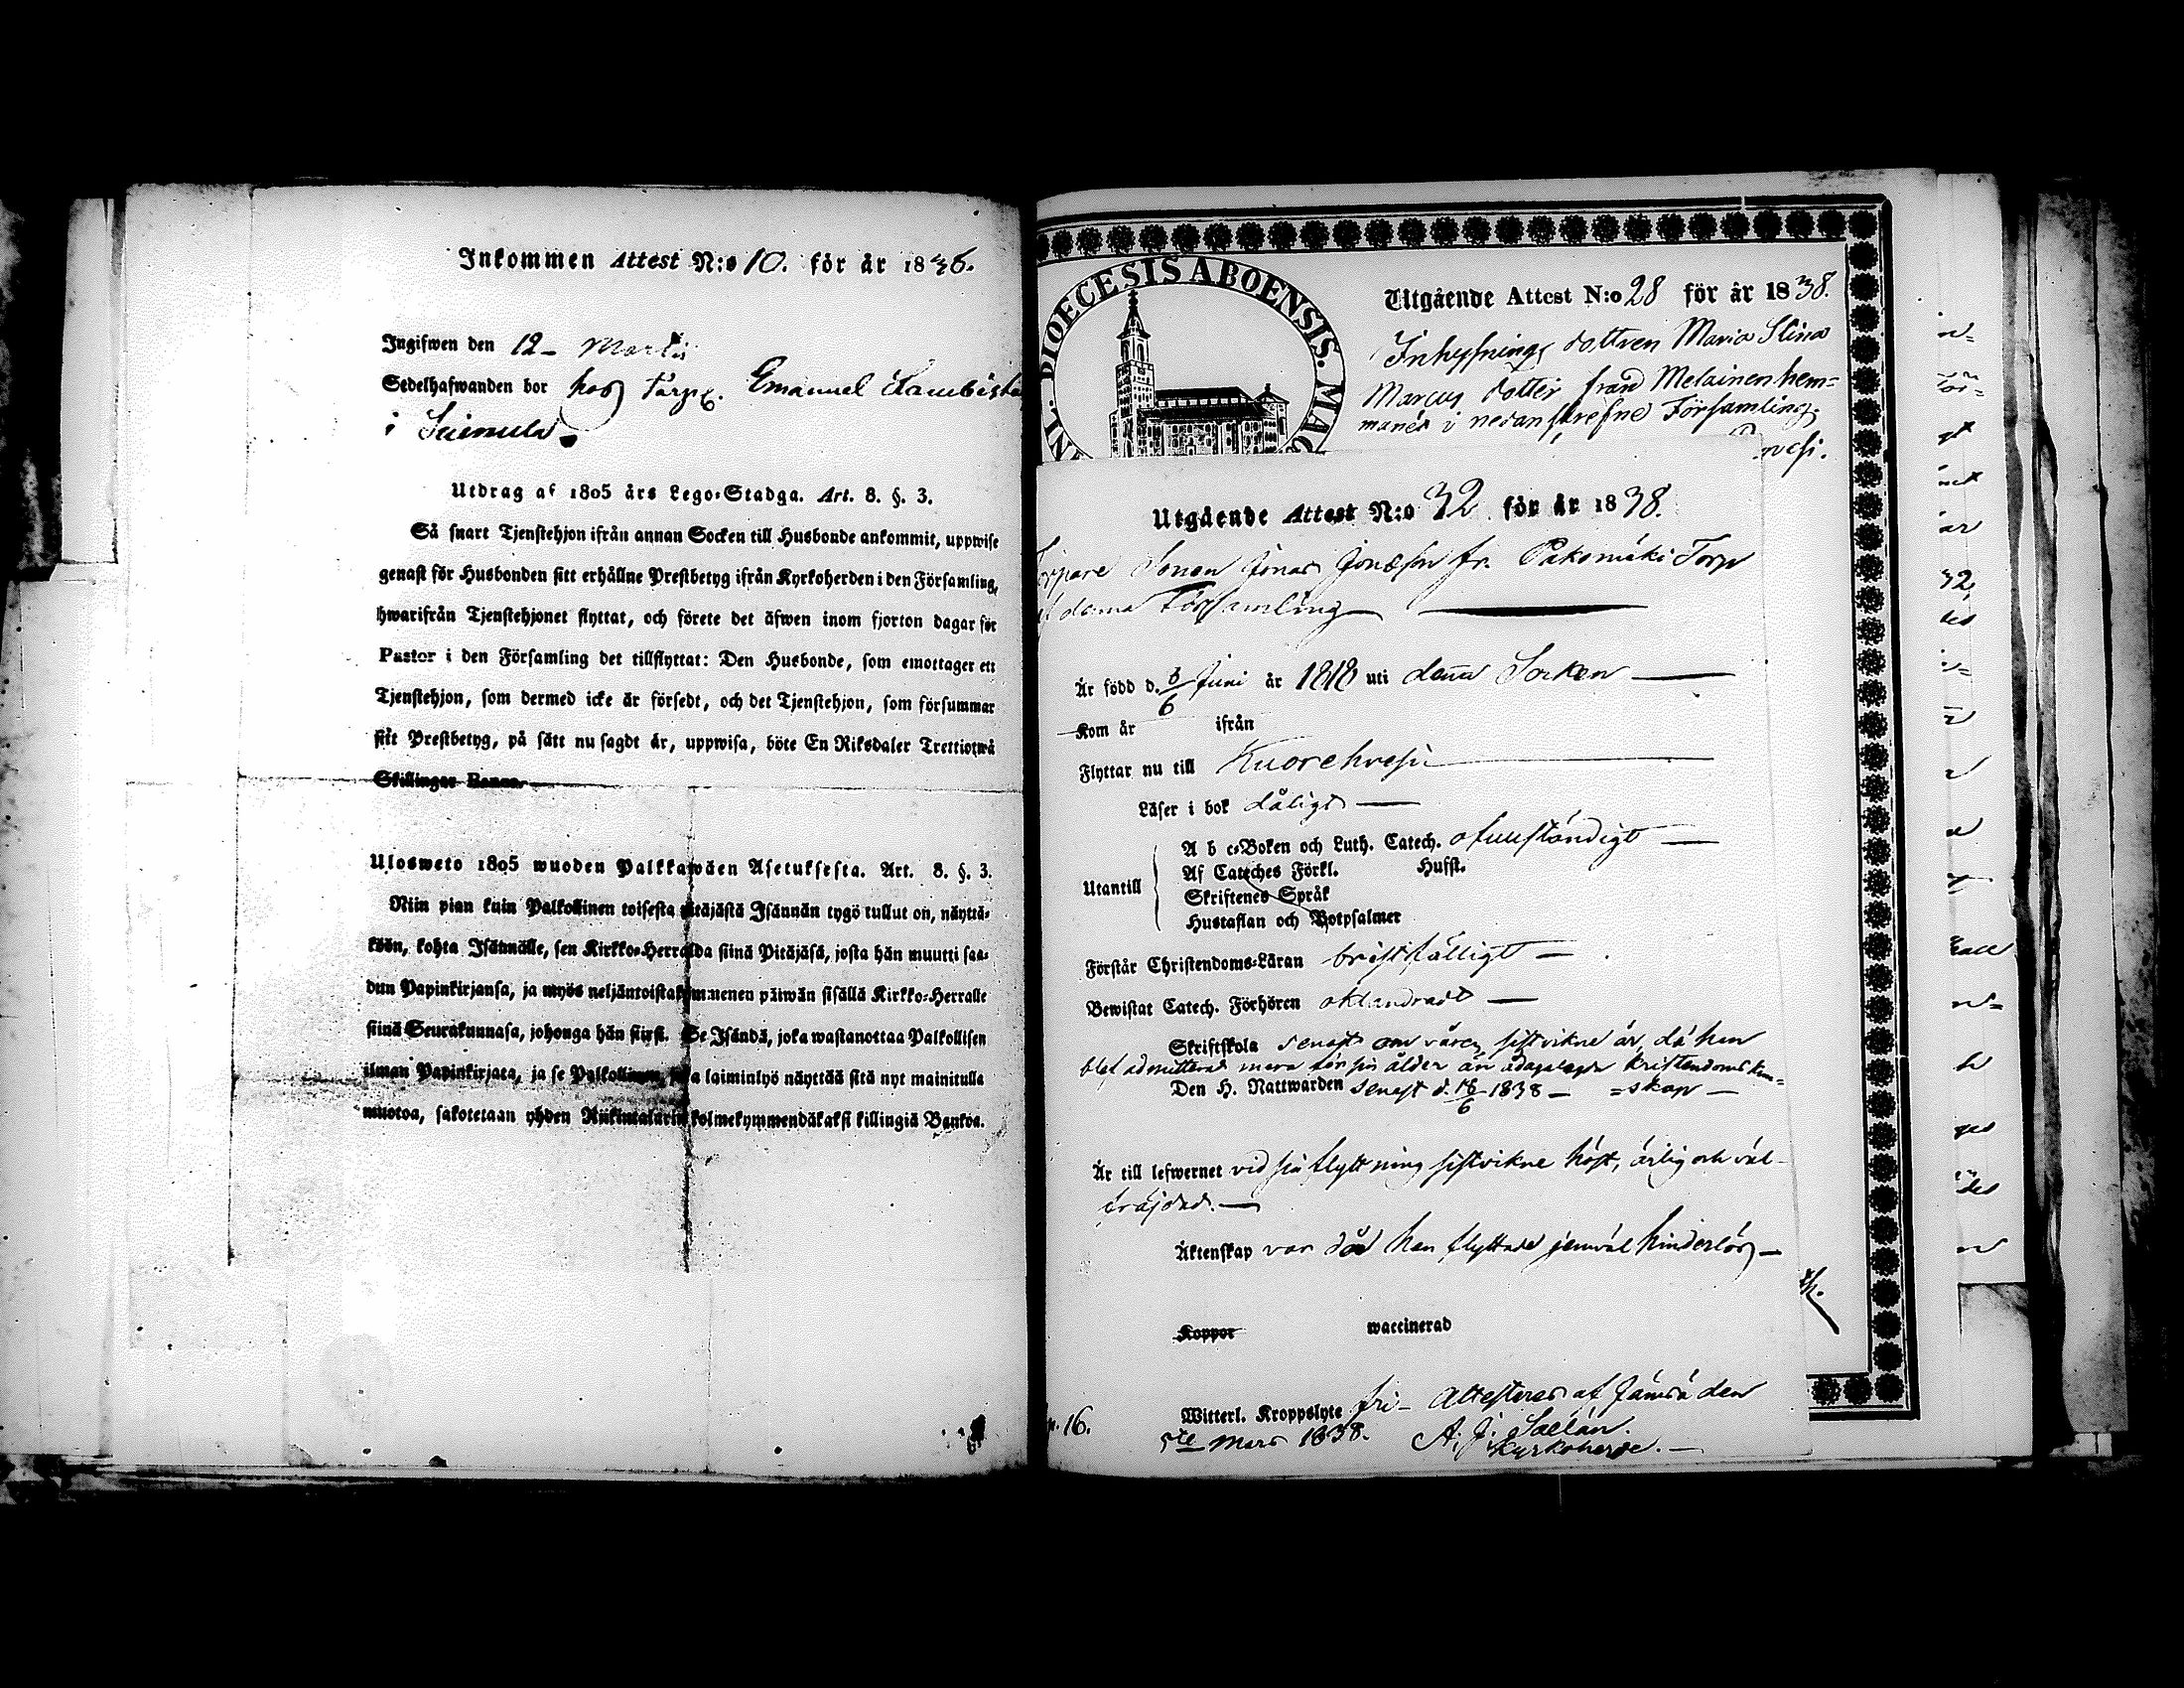 Inkommen Attest N:o 10. för år 1836.
Ingifwen den 12 - Martii
Sedelhafwanden bor hos Torp. Emanuel
i
Utdrag af 1805 års Lego-Stadga. Art. 8. §. 3.
Så snart Tjenstehjon ifrån annan Socken till Husbonde ankommit, uppwise
genast för Husbonden sitt erhållne Prestbetyg ifrån Kyrkoherden i den Församling,
hwarifrån Tjenstehjonet flyttat, och förete det äfwen inom fjorton dagar för
Pastor i den Församling det tillflyttat: Den Husbonde, som emottager ett
Tjenstehjon, som dermed icke är försedt, och det Tjenstehjon, som försummar
sitt Prestbetyg, på sätt nu sagdt är, uppwisa, böte En Riksdaler Trettiotwå
Skillingar Banco.
Ulosweto 1805 wuoden Palkkawäen Asetuksesta. Art. 8. §. 3.
Niin pian kuin Palkollinen toisesta pitäjästä Isännän tygö tullut on, näyttä-
köön, kohta Isännälle, sen Kirkko-Herralda siinä Pitäjäsä, josta hän muutti saa-
dun Papinkirjansa, ja myös neljäntoistakymmenen päiwän sisällä Kirkko-Herralle
siinä Seurakunnasa, johonga hän siirsi. Se Isändä, joka wastanottaa Palkollisen
ilman Papinkirjata, ja se Palkollinen, joka laiminlyö näyttää sitä nyt mainitulla
muotoa, sakotetaan yhden Riikintalarin kolmekymmendäkaksi killingiä Bankoa.
DIOECESIS ABOENSIS. MAG
Utgående Attest N:o 28 för år 1838.
Inhysnings dottren Maria Stina
Marcus dotter från Melainen hem-
manet i nedanskrefne Församling.
vesi.
Utgående Attest N:o 32 för år 1838.
Torpare Sonen Jonas Jonasson fr. Pakomäki Torp
denna Församling
Är född d. 6/6 Juni år 1818 uti denna Socken
Kom år ifrån
Flyttar nu till Kuorehvesi
Läser i bok dåligt
Utantill
A b c-Boken och Luth. Catech. ofullständigt
Af Cateches Förkl. Hufst.
Skriftenes Språk
Hustaflan och Botpsalmer
Förstår Christendoms-Läran bristfälligt
Bewistat Catech. Förhören oklandradt
Skriftskola senast om våren sistvikne år, då han
blef admitterad mera för sin ålder än ådagalagde kristendoms kun=
Den H. Nattwarden senast d. 18/6 1838 - =skap
Är till lefwernet vid sin flyttning sistvikne höst, ärlig och väl-
fräjdad.
Äktenskap var då han flyttade jemväl hinderlös
Koppor waccinerad
Witterl. Kroppslyte fri - Attesteras af Jämsä den
5te Mars 1838. A. J. Saelán.
Kyrkoherde.
p. 16.